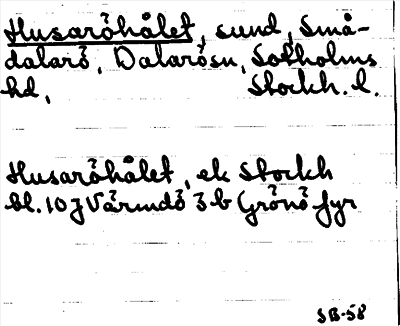 Husaröhålet, sund, Små-
dalarö, Dalarösn, Sotholms
hd, Stockh. l.
Husaröhålet, ek Stockh
bl. 10 J Värmdö 3 b Grönö fyr
SB-58